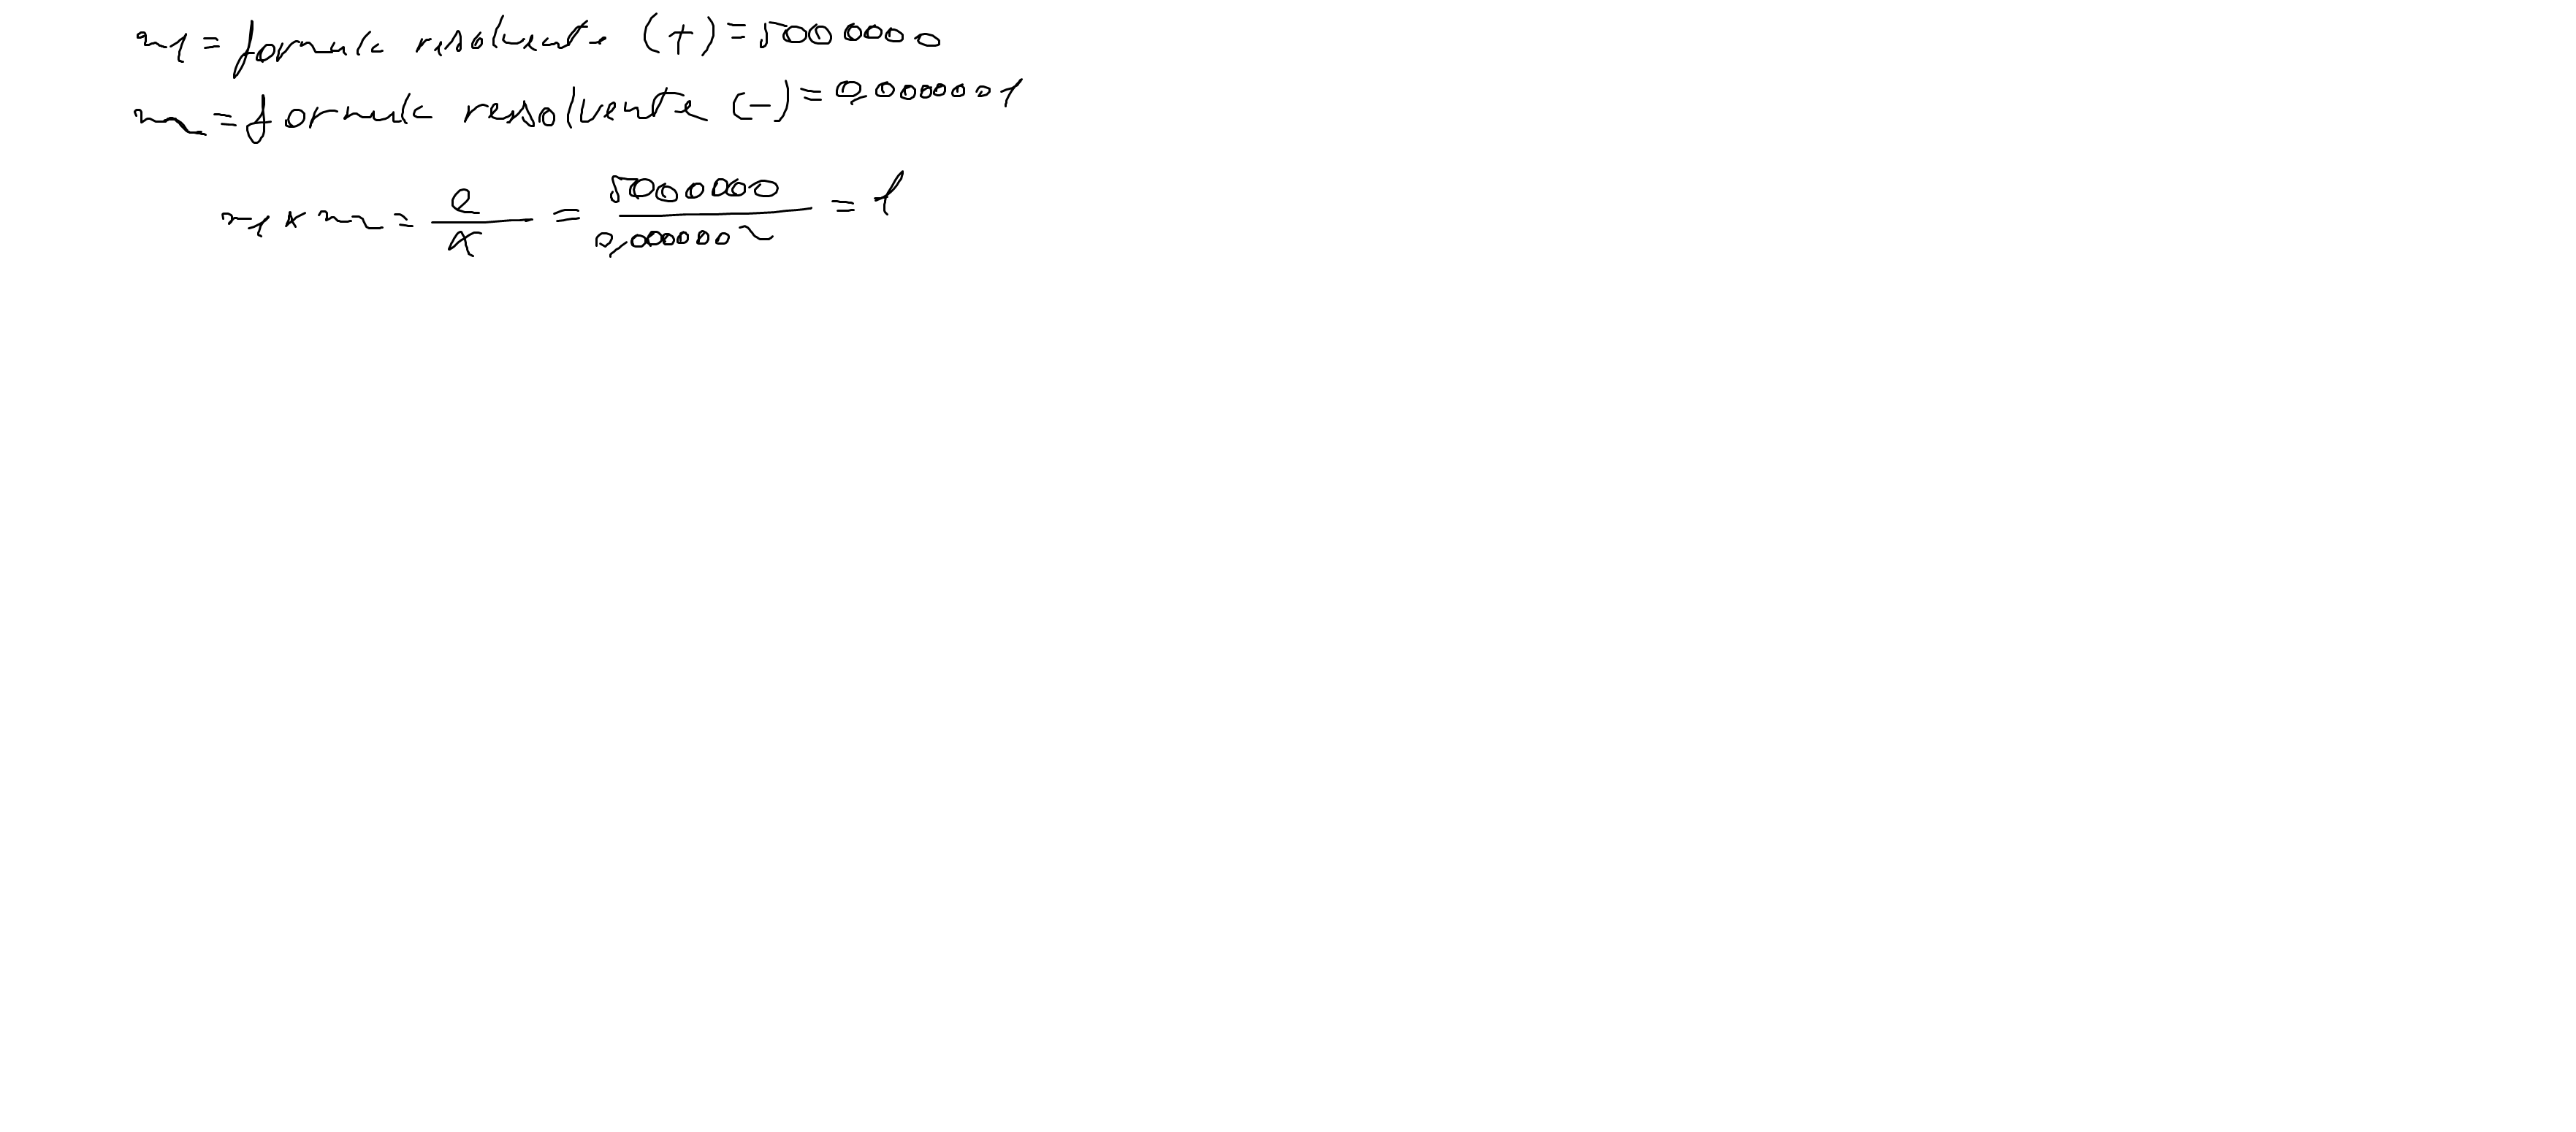 x1 = formula resolvente (+) = 50000000
x2 = formula resolvente (-) = 0,00000001
x1 * x2 = c/a = 5000000/0,0000002 = 1